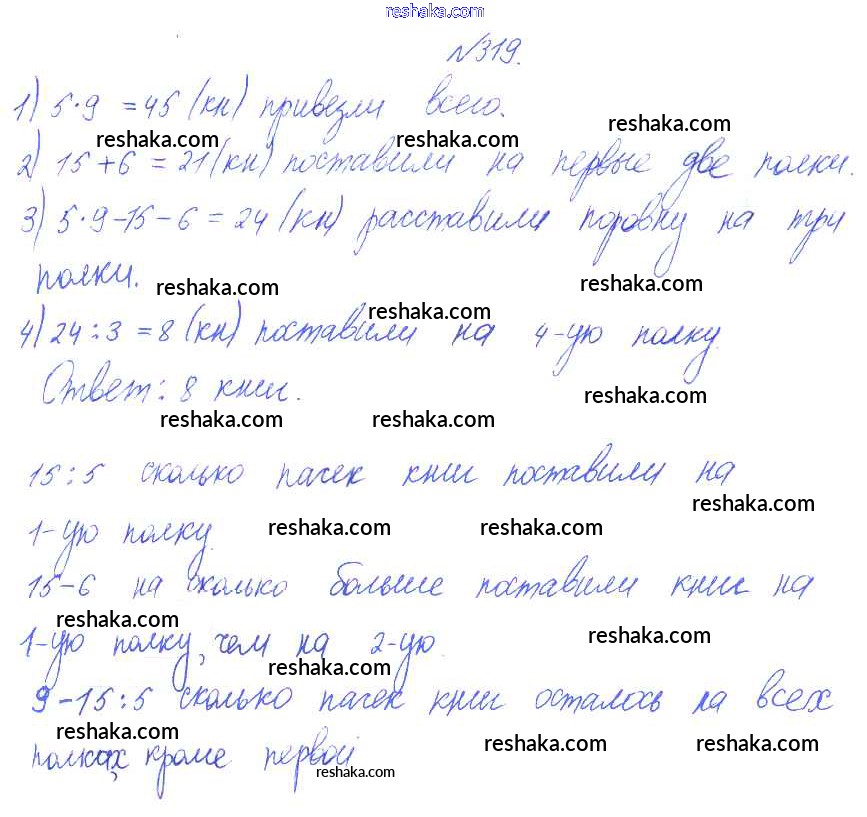 reshaka.com
№319.
1) 5·9 = 45 (кн) привезли всего.
reshaka.com reshaka.com reshaka.com
2) 15+6 = 21 (кн) поставили на первые две полки.
3) 5·9-15-6 = 24 (кн) расставили поровну на три
полки. reshaka.com reshaka.com
reshaka.com
4) 24:3 = 8 (кн) поставили на 4-ую полку
Ответ: 8 книг. reshaka.com
reshaka.com reshaka.com
15:5 сколько пачек книг поставили на
reshaka.com
1-ую полку. reshaka.com reshaka.com
15-6 на сколько больше поставили книг на
reshaka.com reshaka.com
1-ую полку, чем на 2-ую.
reshaka.com
9-15:5 сколько пачек книг осталось на всех
reshaka.com reshaka.com reshaka.com
полках кроме первой
reshaka.com